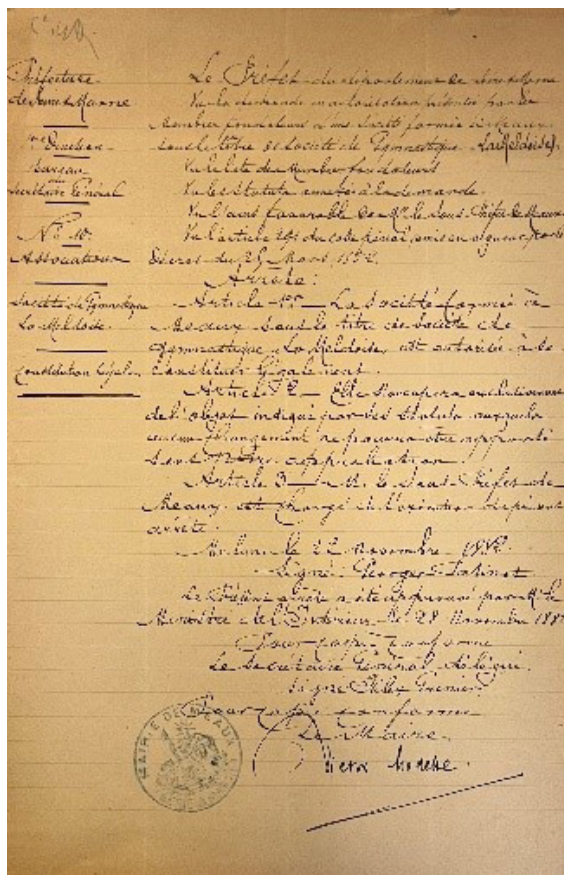 Préfecture
de Seine & Marne
Bureau
du
Secrétaire Général
No 10
Associations
Société de Gymnastique
La Meldoise
Constitution légale
Le Préfet du département de Seine & Marne
Vu la demande en autorisation présentée par les
membres fondateurs d'une société formée à Meaux
sous le titre de Société de Gymnastique La Meldoise,
Vu la liste des membres fondateurs
Vu les statuts annexés à la demande
Vu l'avis favorable de Mr le Sous Préfet de Meaux
Vu l'article 291 du code pénal, mis en vigueur par le
Décret du 25 Mars 1852
Arrête :
Article 1er — La Société formée à
Meaux sous le titre de Société de
Gymnastique La Meldoise, est autorisée à se
constituer légalement.
Article 2 — Elle s'occupera exclusivement
de l'objet indiqué par ses statuts auxquels
aucun changement ne pourra être apporté
sans Notre approbation.
Article 3 — M. le Sous Préfet de
Meaux est chargé de l'exécution du présent
arrêté.
Melun, le 22 Novembre
Signé : Georges Patinot
Le présent arrêté a été approuvé par M. le
Ministre de l'Intérieur le 28 Novembre
Pour copie conforme
Le Secrétaire Général délégué
Signé
Pour copie conforme
Le Maire,
MAIRIE DE MEAUX